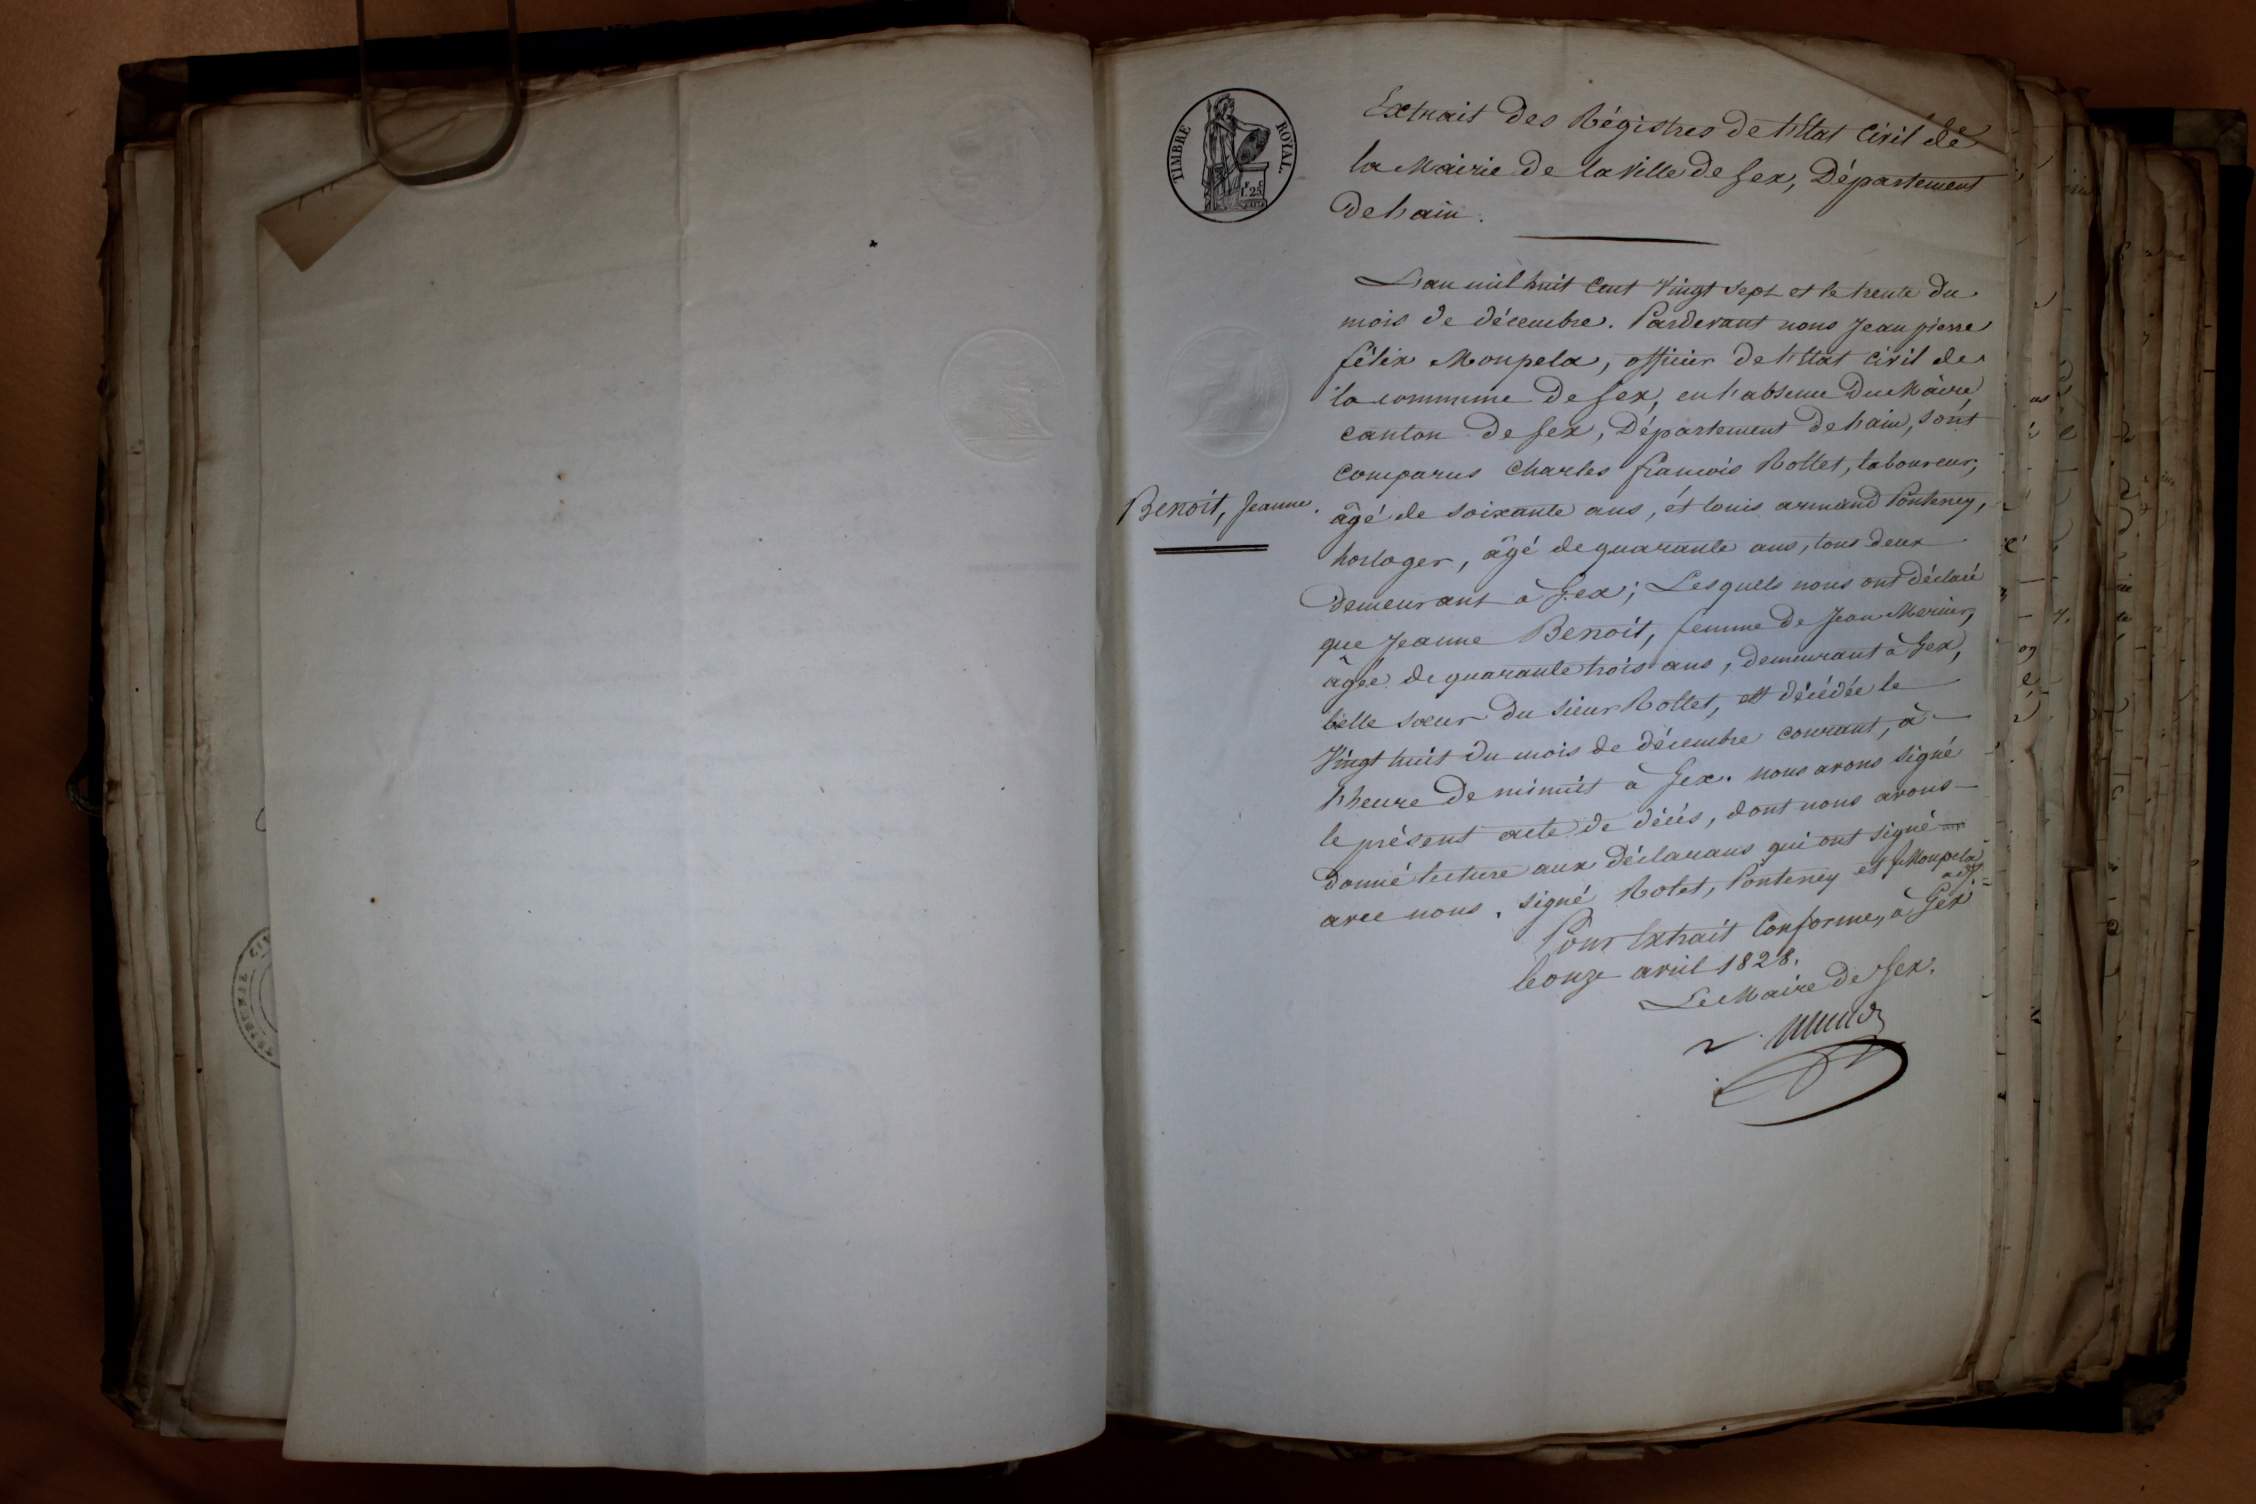 TIMBRE ROYAL
1.F 25.C
Extrait des Régistres de l'Etat civil de
la Mairie de la Ville de Gex, Département
de l'ain.
L'an mil huit cent vingt sept et le trente du
mois de décembre. Pardevant nous Jean pierre
félix Moupela, officier de l'Etat civil de
la commune de Gex, en l'absence du Maire,
canton de Gex, Département de l'ain, sont
comparus Charles françois Rollet, laboureur,
âgé de soixante ans, et louis armand Ponteney,
Benoit, Jeanne.
horloger, âgé de quarante ans, tous deux
demeurant à Gex; Lesquels nous ont déclaré
que Jeanne Benoit, femme de Jean Mercier,
âgée de quarante trois ans, demeurant à Gex,
belle sœur du sieur Rollet, est décédée le
Vingt huit du mois de décembre courant, à
l'heure de minuit à Gex. nous avons signé
le présent acte de décés, dont nous avons
donné lecture aux déclarans qui ont signé
avec nous. signé Rolet, Ponteney et Moupela
adj.
Pour Extrait Conforme, à Gex
le onze avril 1828.
Le Maire de Gex.